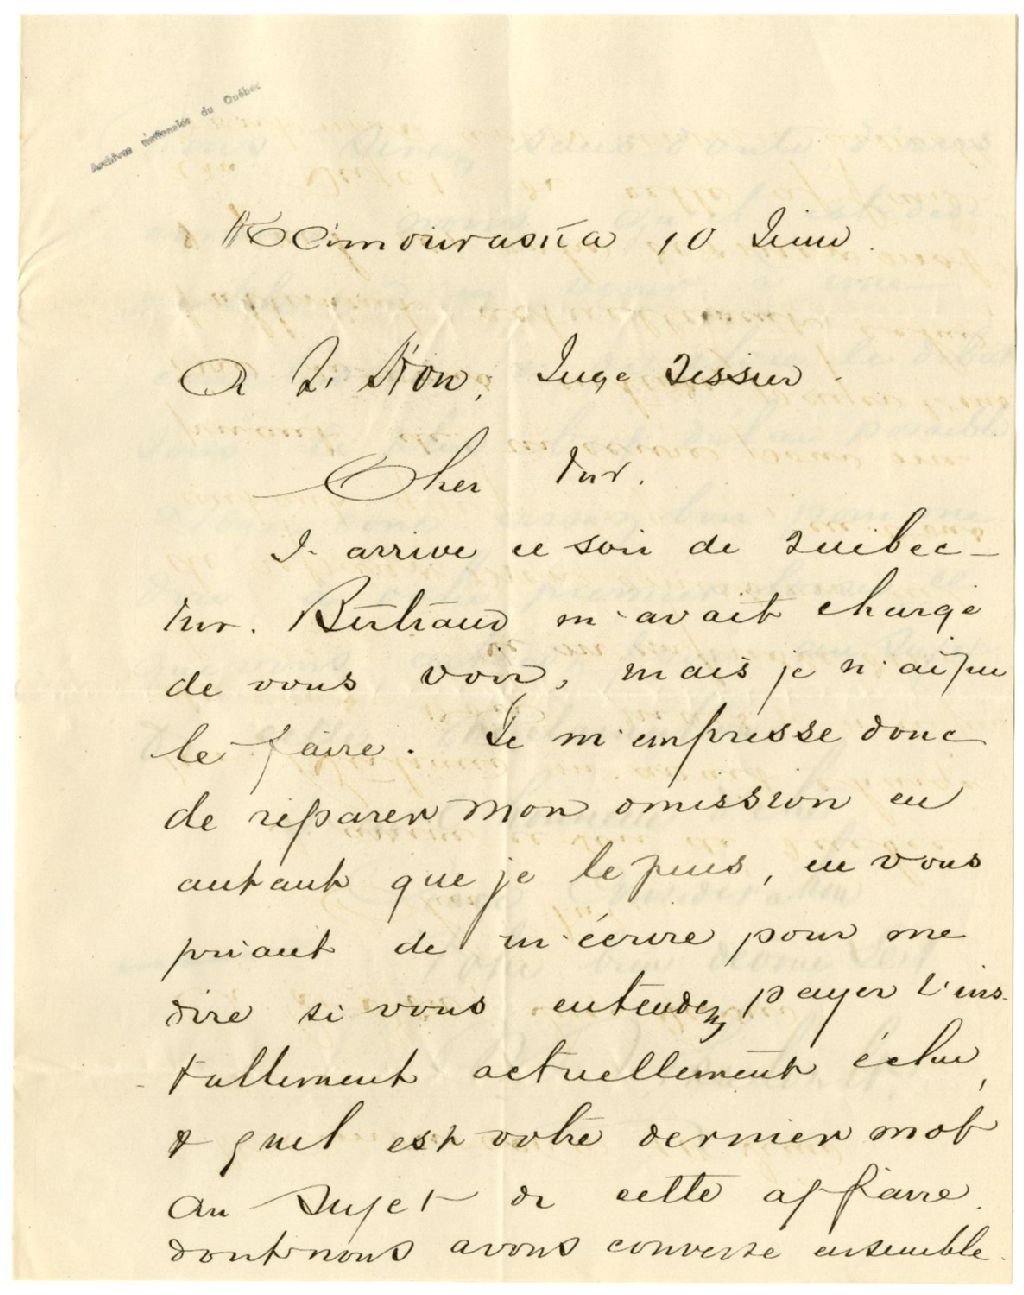 Archives nationales du Québec
Kamouraska 10 Juin.
A L'Hon. Juge Tessier.
Cher Mr.
J'arrive ce soir de Québec_
Mr. Bertrand m'avait chargé
de vous voir, mais je n'ai pu
le faire. Je m'empresse donc
de réparer mon omission en
autant que je le puis, en vous
priant de m'écrire pour me
dire si vous entendez payer l'ins-
tallement actuellement échu,
& quel est votre dernier mot
au sujet de cette affaire
dont nous avons conversé ensemble.